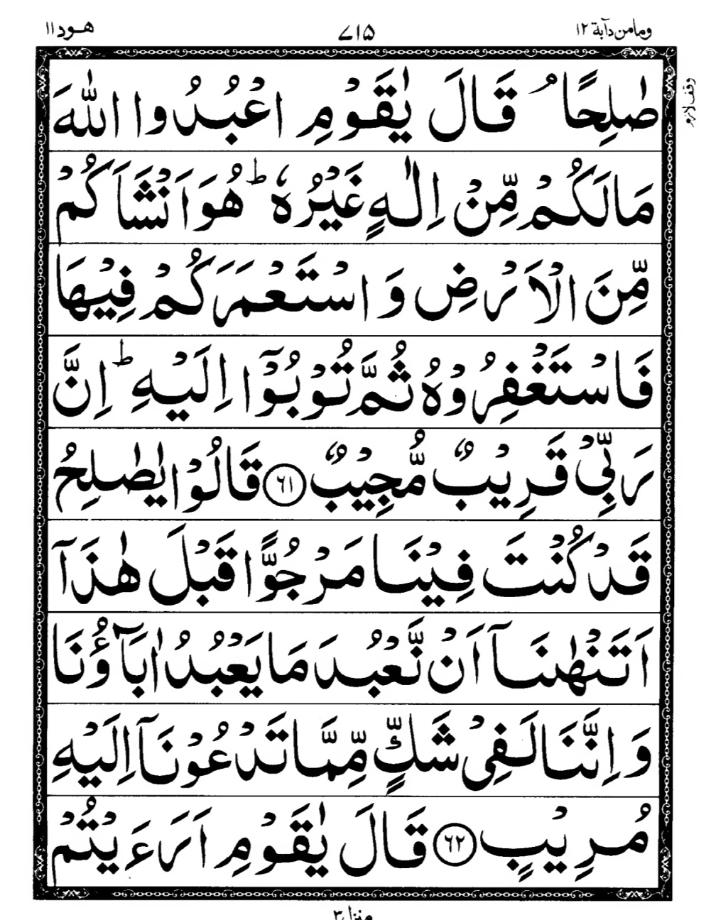 ومامن دآبة ١٢ ٧١٥ هود ١١
وقف لازم
صٰلِحًا ۘ قَالَ يٰقَوْمِ اعْبُدُوا اللّٰهَ
مَا لَكُمْ مِّنْ اِلٰهٍ غَيْرُهٗ ؕ هُوَ اَنْشَاَكُمْ
مِّنَ الْاَرْضِ وَ اسْتَعْمَرَكُمْ فِيْهَا
فَاسْتَغْفِرُوْهُ ثُمَّ تُوْبُوْۤا اِلَيْهِ ؕ اِنَّ
رَبِّيْ قَرِيْبٌ مُّجِيْبٌ ﴿٦١﴾ قَالُوْا يٰصٰلِحُ
قَدْ كُنْتَ فِيْنَا مَرْجُوًّا قَبْلَ هٰذَاۤ
اَتَنْهٰىنَاۤ اَنْ نَّعْبُدَ مَا يَعْبُدُ اٰبَآؤُنَا
وَ اِنَّنَا لَفِيْ شَكٍّ مِّمَّا تَدْعُوْنَاۤ اِلَيْهِ
مُرِيْبٍ ﴿٦٢﴾ قَالَ يٰقَوْمِ اَرَءَيْتُمْ
منزل ٣